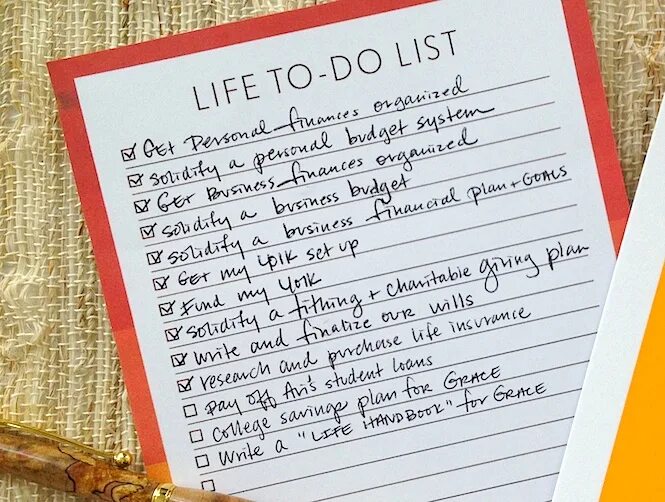 LIFE TO-DO LIST
Get Personal finances organized
solidify a personal budget system
Get Business finances organized
solidify a business budget
solidify a business financial plan + GOALS
Get my 401k set up
Fund my 401k
solidify a tithing + charitable giving plan
write and finalize our wills
research and purchase life insurance
Pay off Ari's student loans
College savings plan for GRACE
Write a "LIFE HANDBOOK" for GRACE